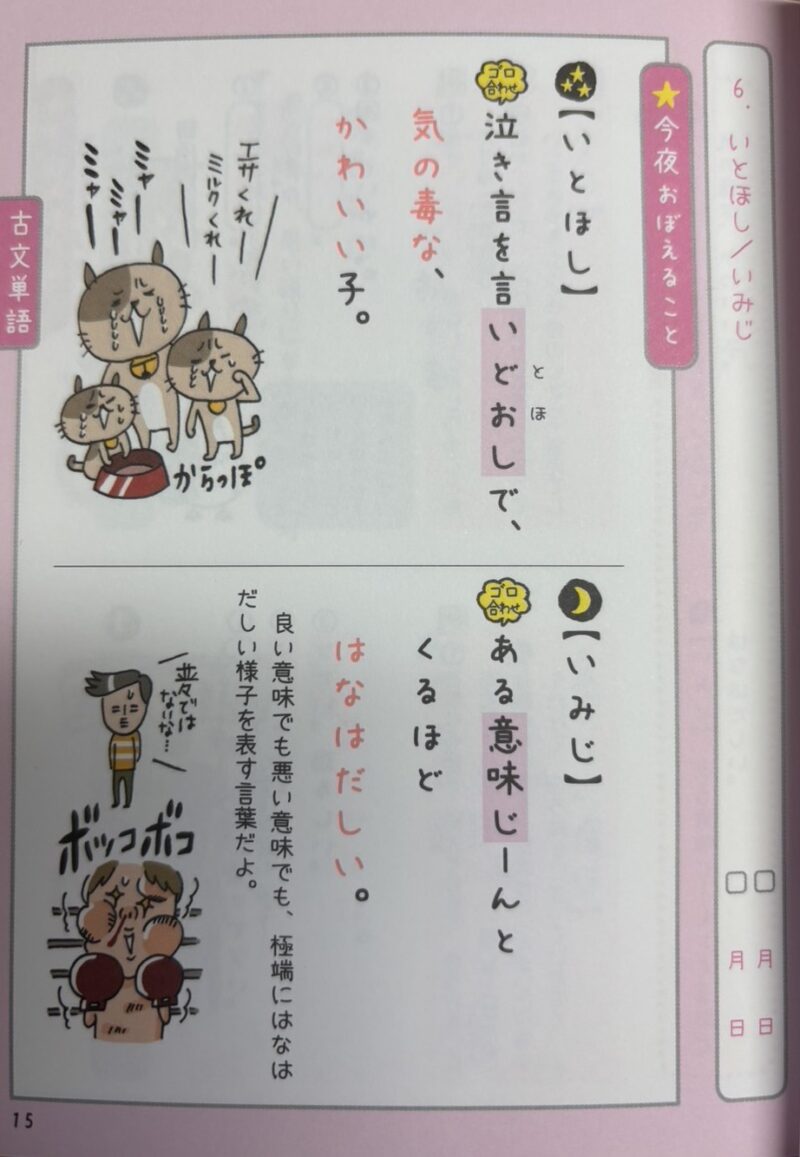 6. いとほし／いみじ
□ 月 日
□ 月 日
★今夜おぼえること
【いとほし】
ゴロ
合わせ
泣き言を言いどおしで、
とほ
気の毒な、
かわいい子。
エサくれー
ミルクくれー
ミャー
ミャー
ミャー
からっぽ。
【いみじ】
ゴロ
合わせ
ある意味じーんと
くるほど
はなはだしい。
良い意味でも悪い意味でも、極端にはなは
だしい様子を表す言葉だよ。
並々では
ないな…
ボッコボコ
古文単語
15